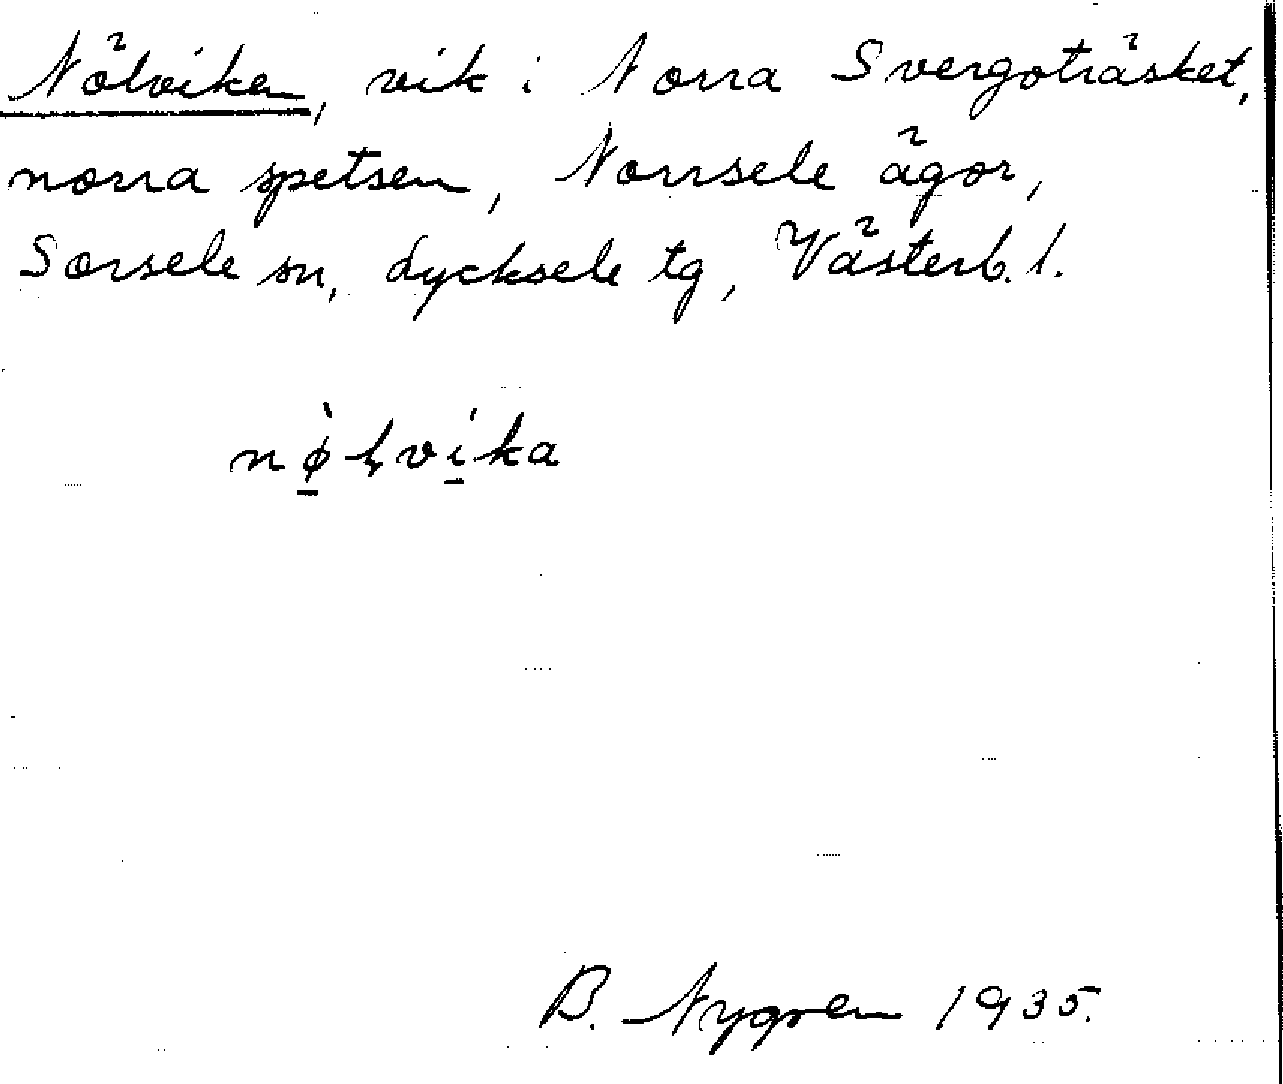 Nölviken, vik i Norra Svergoträsket,
norra spetsen, Norrsele ägor,
Sorsele sn, Lycksele tg, Västerb. l.
nø̲̀ḷví̲ka
B. Nygren 1935.